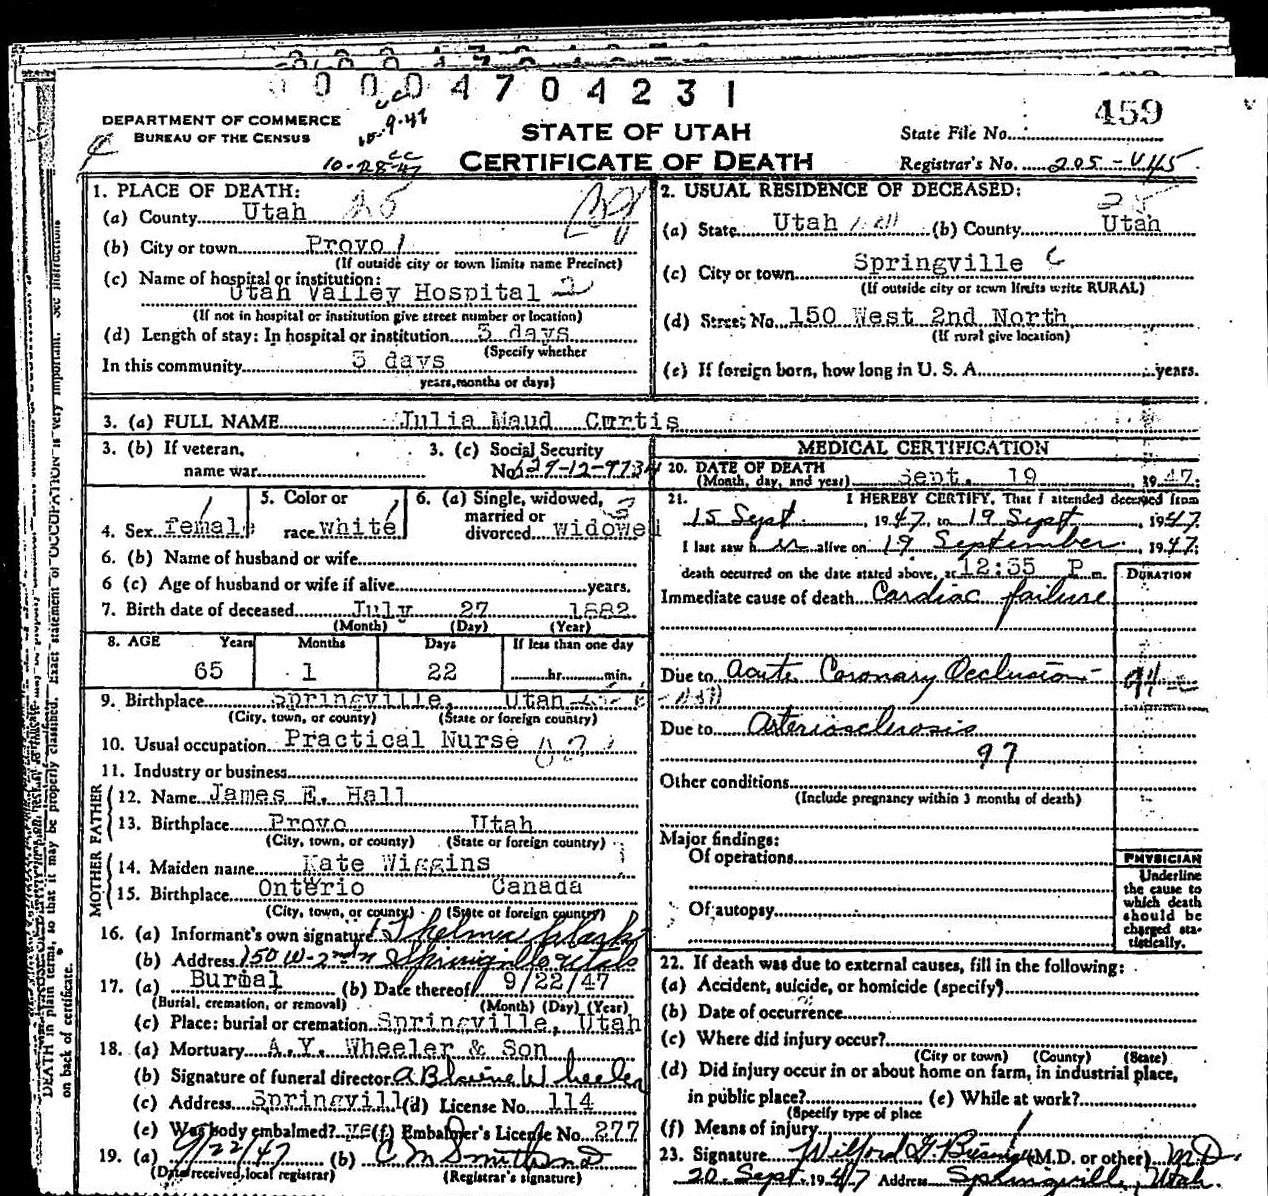 0 0 0 0 4 7 0 4 2 3 1
459
DEPARTMENT OF COMMERCE
BUREAU OF THE CENSUS
10-9-47
10-28-47
STATE OF UTAH
CERTIFICATE OF DEATH
State File No.
Registrar's No. 205-
1. PLACE OF DEATH:
(a) County Utah 25
(b) City or town Provo 1
(If outside city or town limits name Precinct)
(c) Name of hospital or institution:
Utah Valley Hospital 2
(If not in hospital or institution give street number or location)
(d) Length of stay: In hospital or institution 3 days
(Specify whether
In this community 3 days
years, months or days)
2. USUAL RESIDENCE OF DECEASED:
25
(a) State Utah (b) County Utah
(c) City or town Springville
(If outside city or town limits write RURAL)
(d) Street No. 150 West 2nd North
(If rural give location)
(e) If foreign born, how long in U. S. A. years.
3. (a) FULL NAME Julia Maud Curtis
3. (b) If veteran, name war
3. (c) Social Security No.
4. Sex female
5. Color or race white
6. (a) Single, widowed, married or divorced widowed
6. (b) Name of husband or wife
6 (c) Age of husband or wife if alive years.
7. Birth date of deceased July 27 1882
(Month) (Day) (Year)
8. AGE Years Months Days If less than one day
65 1 22 hr. min.
9. Birthplace Springville, Utah
(City, town, or county) (State or foreign country)
10. Usual occupation Practical Nurse
11. Industry or business
FATHER
12. Name James E. Hall
13. Birthplace Provo Utah
(City, town, or county) (State or foreign country)
MOTHER
14. Maiden name Kate Wiggins
15. Birthplace Onterio Canada
(City, town, or county) (State or foreign country)
16. (a) Informant's own signature Thelma Clark
(b) Address 150 W-2nd N Springville Utah
17. (a) Burial (b) Date thereof 9/22/47
(Burial, cremation, or removal) (Month) (Day) (Year)
(c) Place: burial or cremation Springville, Utah
18. (a) Mortuary A.Y. Wheeler & Son
(b) Signature of funeral director A Blaine Wheeler
(c) Address Springville (d) License No. 114
(e) Was body embalmed? yes (f) Embalmer's License No. 277
19. (a) 9/22/47 (b) C M Smith
(Date received, local registrar) (Registrar's signature)
MEDICAL CERTIFICATION
20. DATE OF DEATH
(Month, day, and year) Sept. 19 1947
21. I HEREBY CERTIFY, That I attended deceased from
15 Sept, 1947, to 19 Sept, 1947
I last saw her alive on 19 September, 1947
death occurred on the date stated above, at 12:35 P m.
DURATION
Immediate cause of death Cardiac failure
Due to Acute Coronary Occlusion
Due to Arteriosclerosis
97
Other conditions
(Include pregnancy within 3 months of death)
Major findings:
Of operations
Of autopsy
PHYSICIAN
Underline
the cause to
which death
should be
charged sta-
tistically.
22. If death was due to external causes, fill in the following:
(a) Accident, suicide, or homicide (specify)
(b) Date of occurrence
(c) Where did injury occur?
(City or town) (County) (State)
(d) Did injury occur in or about home on farm, in industrial place,
in public place? (e) While at work?
(Specify type of place
(f) Means of injury
23. Signature Wilford G. (M.D. or other) M D.
20 Sept. 1947 Address Springville, Utah.
DEATH in plain terms, so that it may be properly classified. Exact statement of OCCUPATION is very important. See instructions
on back of certificate.